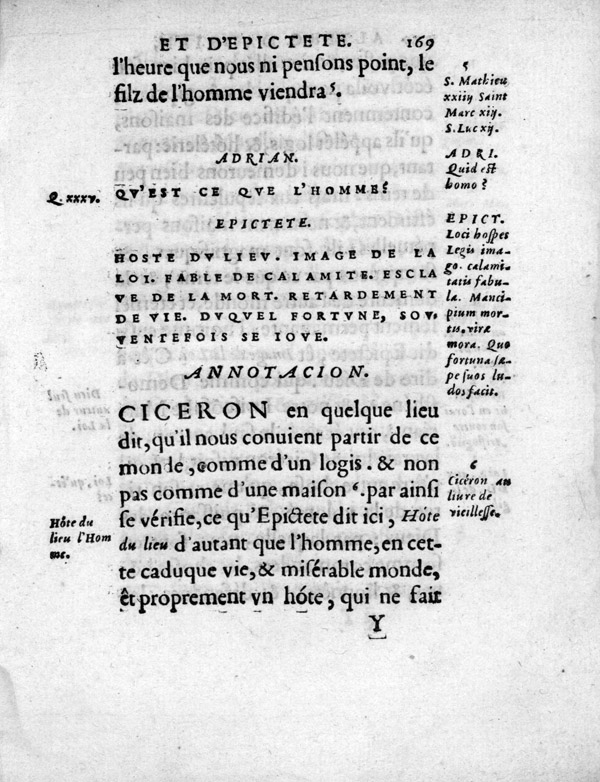 ET D'EPICTETE. 169
l'heure que nous ni pensons point, le
filz de l'homme viendra⁵.
5
S. Mathieu
xxiiij Saint
Marc xiij.
S. Luc xij.
ADRIAN.
Q. xxxv. QV'EST CE QVE L'HOMME?
ADRI.
Quid est
homo?
EPICTETE.
HOSTE DV LIEV. IMAGE DE LA
LOI. FABLE DE CALAMITE. ESCLA
VE DE LA MORT. RETARDEMENT
DE VIE. DVQVEL FORTVNE, SOV.
VENTEFOIS SE IOVE.
EPICT.
Loci hospes
Legis ima-
go. calami-
tatis fabu-
la. Manci-
pium mor-
tis. vitæ
mora. Quo
fortuna sæ-
pe suos lu-
dos facit.
ANNOTACION.
CICERON en quelque lieu
dit, qu'il nous conuient partir de ce
monde, comme d'un logis. & non
pas comme d'une maison⁶. par ainsi
se vérifie, ce qu'Epictete dit ici, Hôte
du lieu d'autant que l'homme, en cet-
te caduque vie, & misérable monde,
êt proprement vn hóte, qui ne fait
6
Cicéron au
liure de
vieillesse.
Hôte du
lieu l'Hom
me.
Y